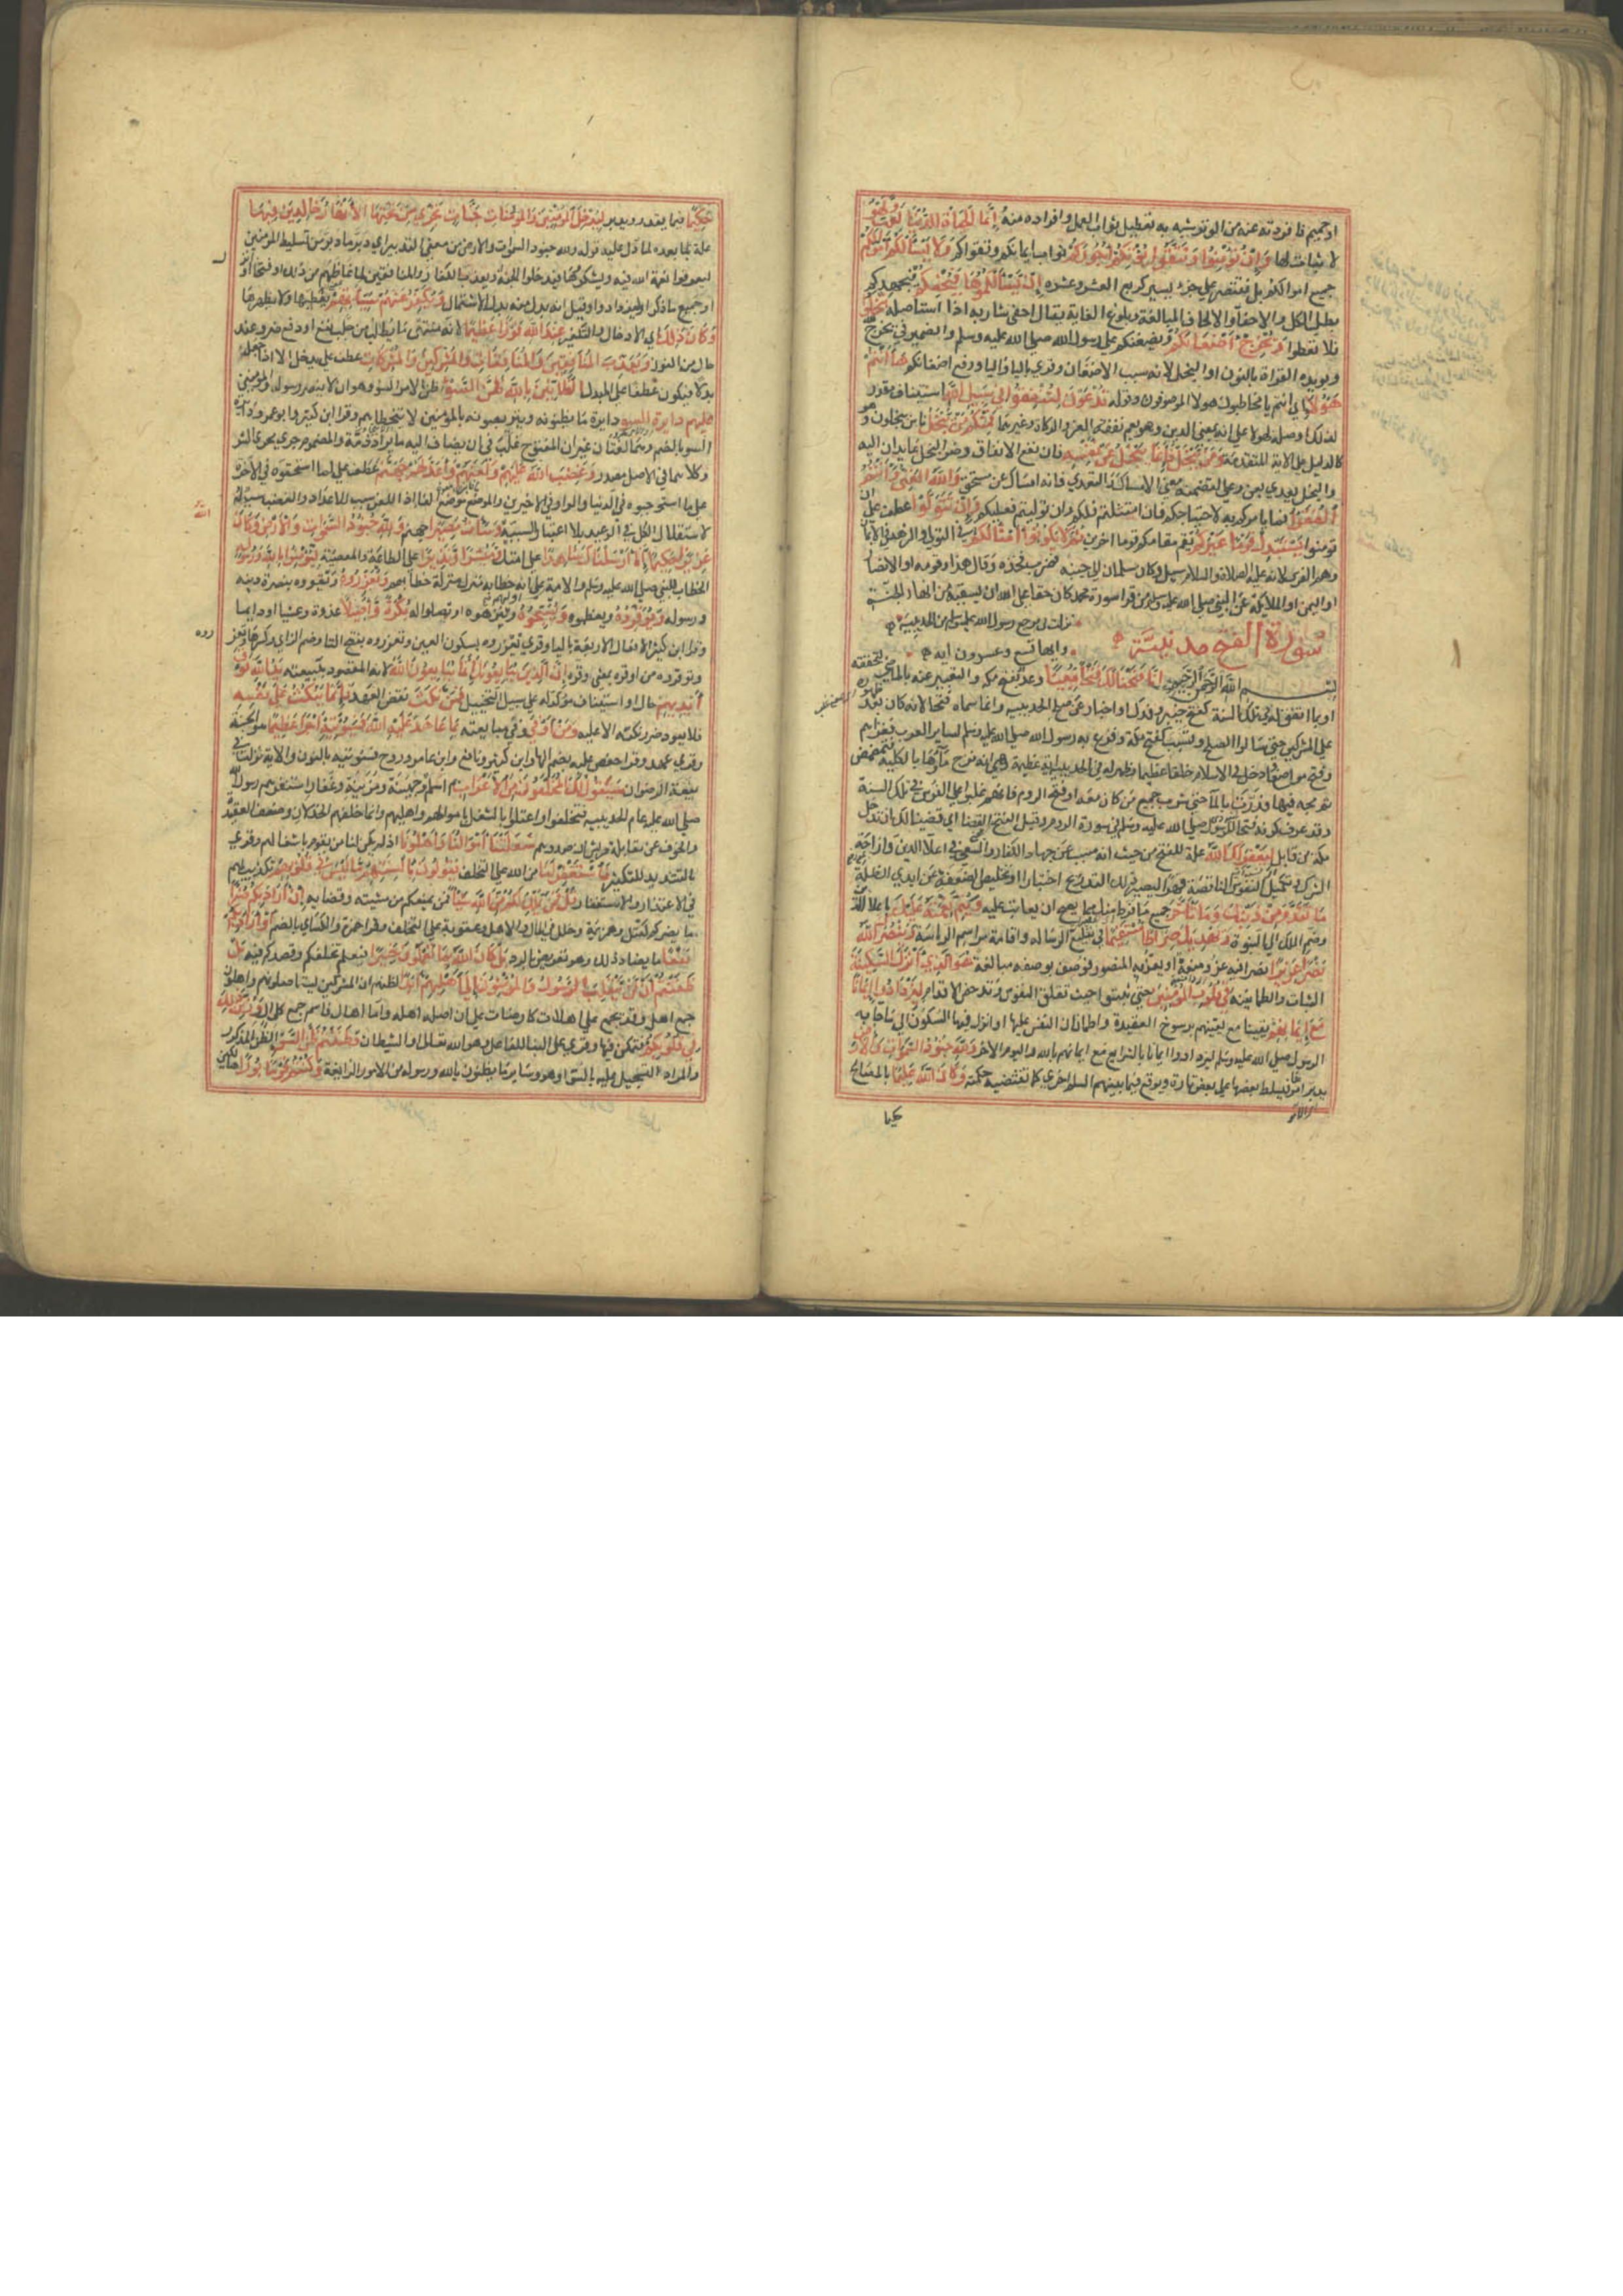 او حميم فافردته عنه من الوتر شبه به تعطيل ثواب العمل وافراده منه إنما الحياة الدنيا لعب ولهو
لا ثبات لها وإن تؤمنوا وتتقوا يؤتكم أجوركم ثواب ايمانكم وتقواكم ولا يسألكم أموالكم
جميع اموالكم بل يقتصر على جزء يسير كربع العشر وعشره إن يسألكموها فيحفكم فيجهدكم
بطلب الكل والاحفاء والالحاف المبالغة وبلوغ الغاية يقال احفى شاربه اذا استاصله تبخلوا
فلا تعطوا ويخرج أضغانكم ويضغنكم على رسول الله صلى الله عليه وسلم والضمير في يخرج لله
ويويده القراة بالنون او البخل لانه سبب الاضغان وقري بالياء والتاء ورفع اضغانكم ها أنتم
هؤلاء اي انتم يا مخاطبون هولا الموصوفون وقوله تدعون لتنفقوا في سبيل الله استيناف مقرر
لذلك او صلة لهولا على انه بمعنى الذين وهو يعم نفقة الغزو والزكاة وغيرهما فمنكم من يبخل ناس يبخلون وهو
كالدليل على الاية المتقدمة ومن يبخل فإنما يبخل عن نفسه فان نفع الانفاق وضر البخل عايدان اليه
والبخل يعدي بعن وعلى لتضمنه معنى الامساك والتعدي فانه امساك عن مستحق والله الغني وأنتم
الفقراء فما يامركم به لاحتياجكم فان امتثلتم فلكم وان توليتم فعليكم وإن تتولوا عطف على ان
تومنوا يستبدل قوما غيركم يقم مقامكم قوما اخرين ثم لا يكونوا أمثالكم في التولي والزهد في الايمان
وهم الفرس لانه عليه الصلاة والسلام سيل وكان سلمان الى جنبه فضرب فخذه وقال هذا وقومه او الانصار
او اليمن او الملائكة عن النبي صلى الله عليه وسلم من قرا سورة محمد كان حقا على الله ان يسقيه من انهار الجنة
نزلت في مرجع رسول الله عليه السلام من الحديبية
سورة الفتح مدنية
وايها تسع وعشرون اية
بسم الله الرحمن الرحيم إنا فتحنا لك فتحا مبينا وعد بفتح مكة والتعبير عنه بالماضي لتحققه
او بما اتفق له في تلك السنة كفتح خيبر وفدك او اخبار عن صلح الحديبية وانما سماه فتحا لانه كان بعد ظهوره
على المشركين حتى سالوا الصلح وتسبب لفتح مكة وفرغ به رسول الله صلى الله عليه وسلم لساير العرب فغزاهم
وفتح مواضع وادخل في الاسلام خلقا عظيما وظهر له في الحديبية اية عظيمة وهي انه نزح ماؤها بالكلية فتمضمض
ثم مجه فيها فدرت بالماء حتى شرب جميع من كان معه او فتح الروم فانهم غلبوا على الفرس في تلك السنة
وقد عرف كونه فتحا للرسول صلى الله عليه وسلم في سورة الروم وقيل الفتح القضا اي قضينا لك ان تدخل
مكة من قابل ليغفر لك الله علة للفتح من حيث انه مسبب عن جهاد الكفار والسعي في اعلا الدين وازاحة
الشرك وتكميل النفوس الناقصة قهرا ليصير ذلك بالتدريج اختيارا وتخليص الضعفة عن ايدي الظلمة
ما تقدم من ذنبك وما تأخر جميع ما فرط منك مما يصح ان يعاتب عليه ويتم نعمته عليك باعلا الدين
وضم الملك الى النبوة ويهديك صراطا مستقيما في تبليغ الرسالة واقامة مراسم الرياسة وينصرك الله
نصرا عزيزا نصرا فيه عز ومنعة او يعز به المنصور فوصف بوصفه مبالغة هو الذي أنزل السكينة
الثبات والطمانينة في قلوب المؤمنين حتى ثبتوا حيث تقلق النفوس وتدحض الاقدام ليزدادوا إيمانا
مع إيمانهم يقينا مع يقينهم برسوخ العقيدة واطمانان النفس عليها او انزل فيها السكون الى ما جاء به
الرسول صلى الله عليه وسلم ليزدادوا ايمانا بالشرايع مع ايمانهم بالله واليوم الاخر ولله جنود السموات والأرض
يدبر امرها فيسلط بعضها على بعض تارة ويوقع فيما بينهم السلم اخرى كما تقتضيه حكمته وكان الله عليما بالمصالح
حكيما
حكيما فيما يقدر ويدبر ليدخل المؤمنين والمؤمنات جنات تجري من تحتها الأنهار خالدين فيها
علة بما بعده لما دل عليه قوله ولله جنود السموات والارض من معنى التدبير اي دبر ما دبر من تسليط المومنين
ليعرفوا نعمة الله فيه ويشكروها فيدخلوا الجنة ويعذب الكفار والمنافقين لما غاظهم من ذلك او فتحنا او انزل
او جميع ما ذكر او ليزدادوا وقيل انه بدل منه بدل الاشتمال ويكفر عنهم سيئاتهم يغطيها ولا يظهرها
وكان ذلك اي الادخال والتكفير عند الله فوزا عظيما لانه منتهى ما يطلب من جلب نفع او دفع ضر وعند
حال من الفوز ويعذب المنافقين والمنافقات والمشركين والمشركات عطف على يدخل الا اذا جعلته
بدلا فيكون عطفا على المبدل الظانين بالله ظن السوء ظن الامر السوء وهو ان لا ينصر رسوله والمومنين
عليهم دايرة السوء دايرة ما يظنونه ويتربصونه بالمومنين لا تتخطاهم وقرا ابن كثير وابو عمرو دايرة
السوء بالضم وهما لغتان غير ان المفتوح غلب في ان يضاف اليه ما يراد ذمه والمضموم جرى مجرى الشر
وكلاهما في الاصل مصدر وغضب الله عليهم ولعنهم وأعد لهم جهنم عطف على ما استحقوه في الاخرة
على ما استوجبوه في الدنيا والواو في الاخيرين والموضع موضع الفا اذ اللعن سبب للاعداد والغضب سبب له
لاستقلال الكل في الوعيد بلا اعتبار السببية وساءت مصيرا جهنم ولله جنود السموات والأرض وكان
الله
عزيزا حكيما إنا أرسلناك شاهدا على امتك مبشرا ونذيرا على الطاعة والمعصية لتؤمنوا بالله ورسوله
الخطاب للنبي صلى الله عليه وسلم والامة او لهم على ان خطابه منزل منزلة خطابهم وتعزروه وتقووه بنصرة دينه
ورسوله وتوقروه وتعظموه وتسبحوه وتنزهوه او تصلوا له بكرة وأصيلا غدوة وعشيا او دايما
وقرا ابن كثير الافعال الاربعة باليا وقري تعزروه بسكون العين وتعزروه بفتح التا وضم الزاي وكسرها وتعززوه
وتوقروه من اوقره بمعنى وقره إن الذين يبايعونك إنما يبايعون الله لانه المقصود ببيعته يد الله فوق
أيديهم حال او استيناف موكد له على سبيل التخييل فمن نكث نقض العهد فإنما ينكث على نفسه
فلا يعود ضرر نكثه الا عليه ومن أوفى وفى مبايعته بما عاهد عليه الله فسيؤتيه أجرا عظيما هو الجنة
وقري عهد وقرا حفص عليه بضم الها وابن كثير ونافع وابن عامر وروح فسنوتيه بالنون والاية نزلت في
بيعة الرضوان سيقول لك المخلفون من الأعراب هم اسلم وجهينة ومزينة وغفار استنفرهم رسول الله
صلى الله عليه عام الحديبية فتخلفوا واعتلوا بالشغل باموالهم واهليهم وانما خلفهم الخذلان وضعف العقيدة
والخوف عن مقابلة قريش ان صدوهم شغلتنا أموالنا وأهلونا اذ لم يكن لنا من يقوم باشغالهم وقري
بالتشديد للتكثير فاستغفر لنا من الله على التخلف يقولون بألسنتهم ما ليس في قلوبهم تكذيب لهم
في الاعتذار والاستغفار قل فمن يملك لكم من الله شيئا فمن يمنعكم من مشيئته وقضايه إن أراد بكم ضرا
ما يضركم كقتل وهزيمة وخلل في المال والاهل وعقوبة على التخلف وقرا حمزة والكسائي بالضم أو أراد بكم
نفعا ما يضاد ذلك وهو تعريض بالرد بل كان الله بما تعملون خبيرا فيعلم تخلفكم وقصدكم فيه بل
ظننتم أن لن ينقلب الرسول والمؤمنون إلى أهليهم أبدا لظنكم ان المشركين يستاصلونهم واهلون
جمع اهل وقد يجمع على اهلات كارضات على ان اصله اهلة واما اهال فاسم جمع كليال وزين ذلك
في قلوبكم فتمكن فيها وقري على البنا للفاعل وهو الله تعالى او الشيطان وظننتم ظن السوء الظن المذكور
والمراد التسجيل عليه بالسوء او هو وساير ما يظنون بالله ورسوله من الامور الزايغة وكنتم قوما بورا هالكين